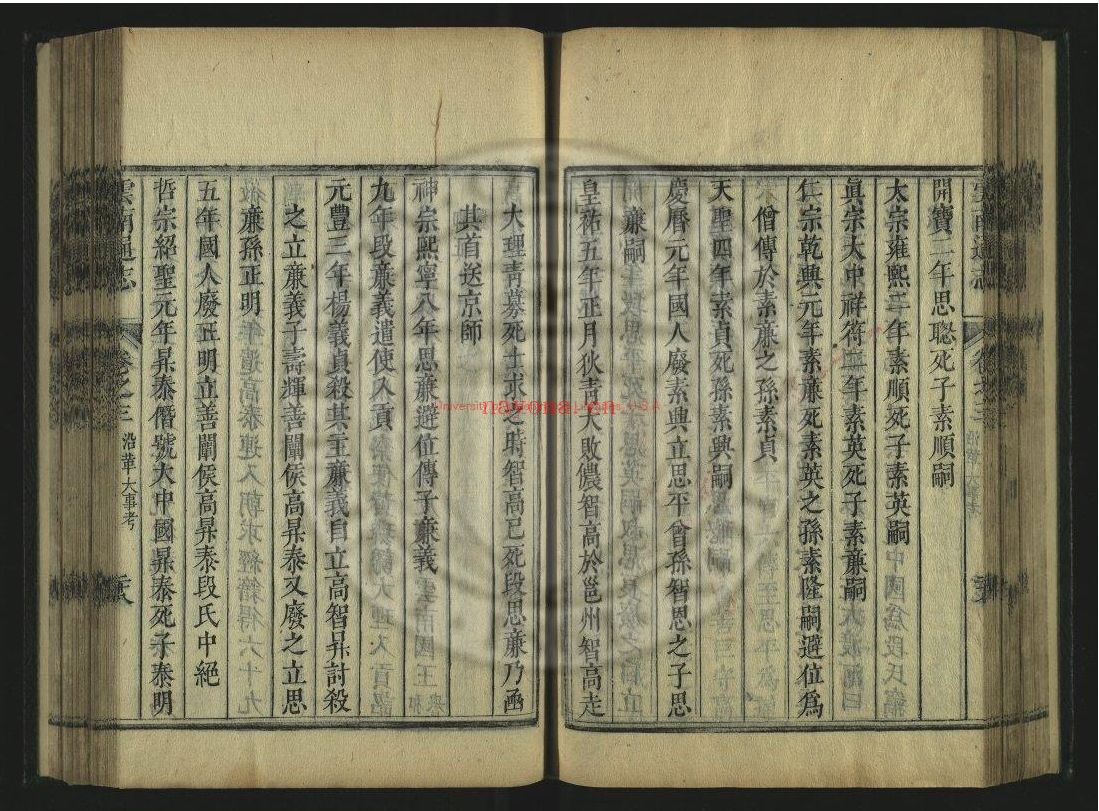 開寶二年思聰死子素順嗣
太宗雍熙二年素順死子素英嗣
眞宗大中祥符二年素英死子素廉嗣
仁宗乾興元年素廉死素英之孫素隆嗣避位爲
僧傳於素廉之孫素貞
天聖四年素貞死孫素興嗣
慶曆元年國人廢素興立思平曾孫智思之子思
廉嗣
皇祐五年正月狄青大敗儂智高於邕州智高走
大理青募死士求之時智高已死段思廉乃函
其首送京師
神宗熙寧八年思廉避位傳子廉義
九年段廉義遣使入貢
元豐三年楊義貞殺其主廉義自立高智昇討殺
之立廉義子壽輝善闡侯高昇泰又廢之立思
廉孫正明
五年國人廢正明立善闡侯高昇泰段氏中絕
哲宗紹聖元年昇泰僭號大中國昇泰死子泰明
雲南通志
卷之三
沿革大事考